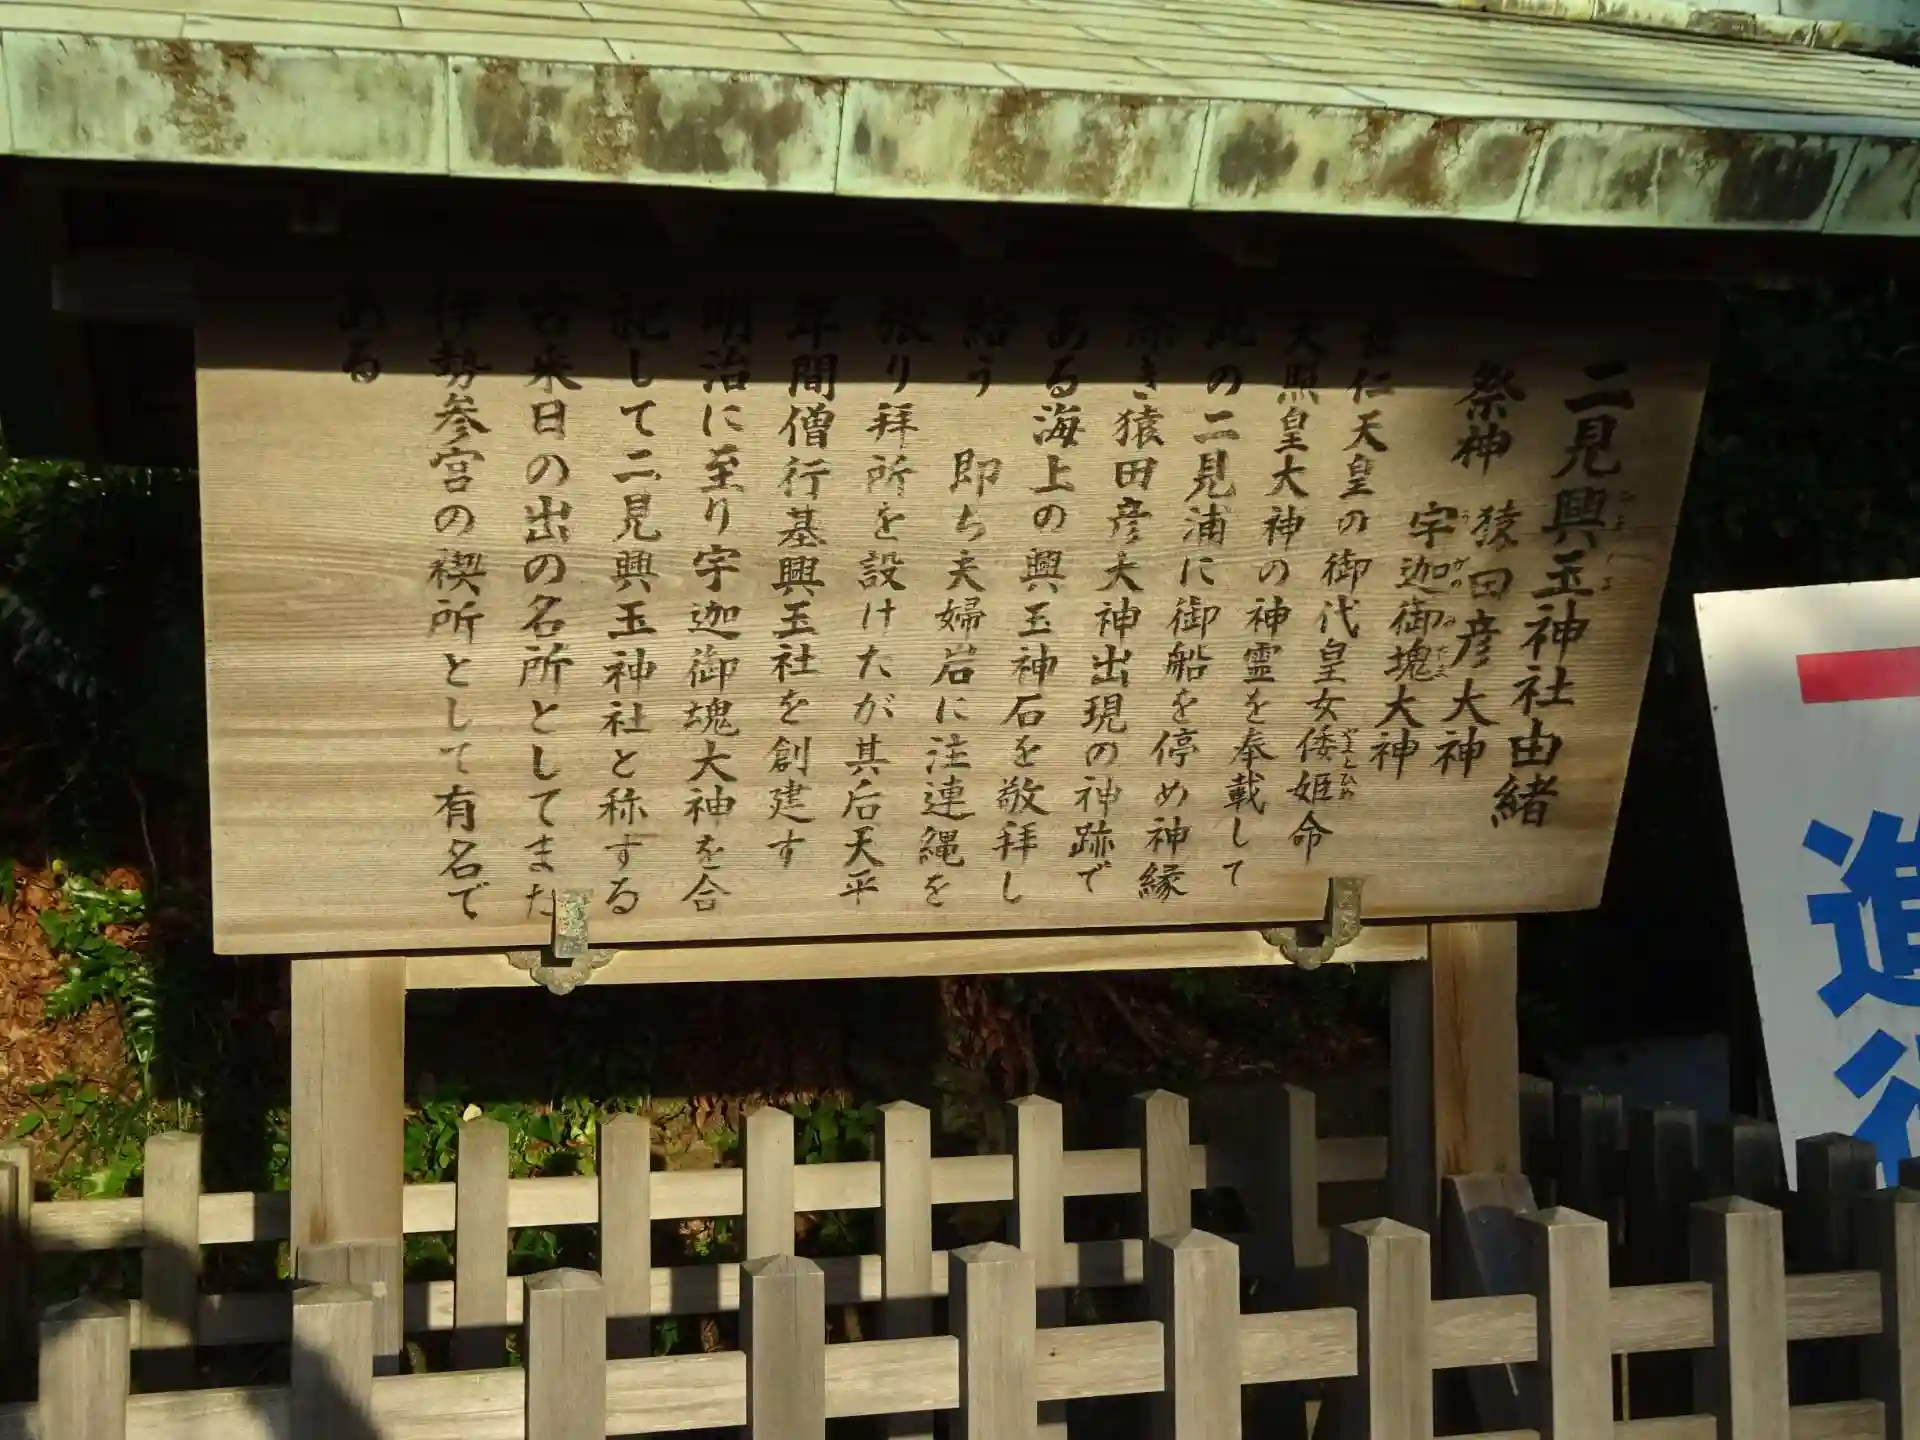 二見興玉神社由緒
祭神 猿田彦大神
宇迦御魂大神
うがのみたま
垂仁天皇の御代皇女倭姫命
やまとひめ
天照皇大神の神霊を奉載して
此の二見浦に御船を停め神縁
深き猿田彦大神出現の神跡で
ある海上の興玉神石を敬拝し
給う 即ち夫婦岩に注連縄を
張り拝所を設けたが其后天平
年間僧行基興玉社を創建す
明治に至り宇迦御魂大神を合
祀して二見興玉神社と称する
古来日の出の名所としてまた
伊勢参宮の禊所として有名で
ある
進